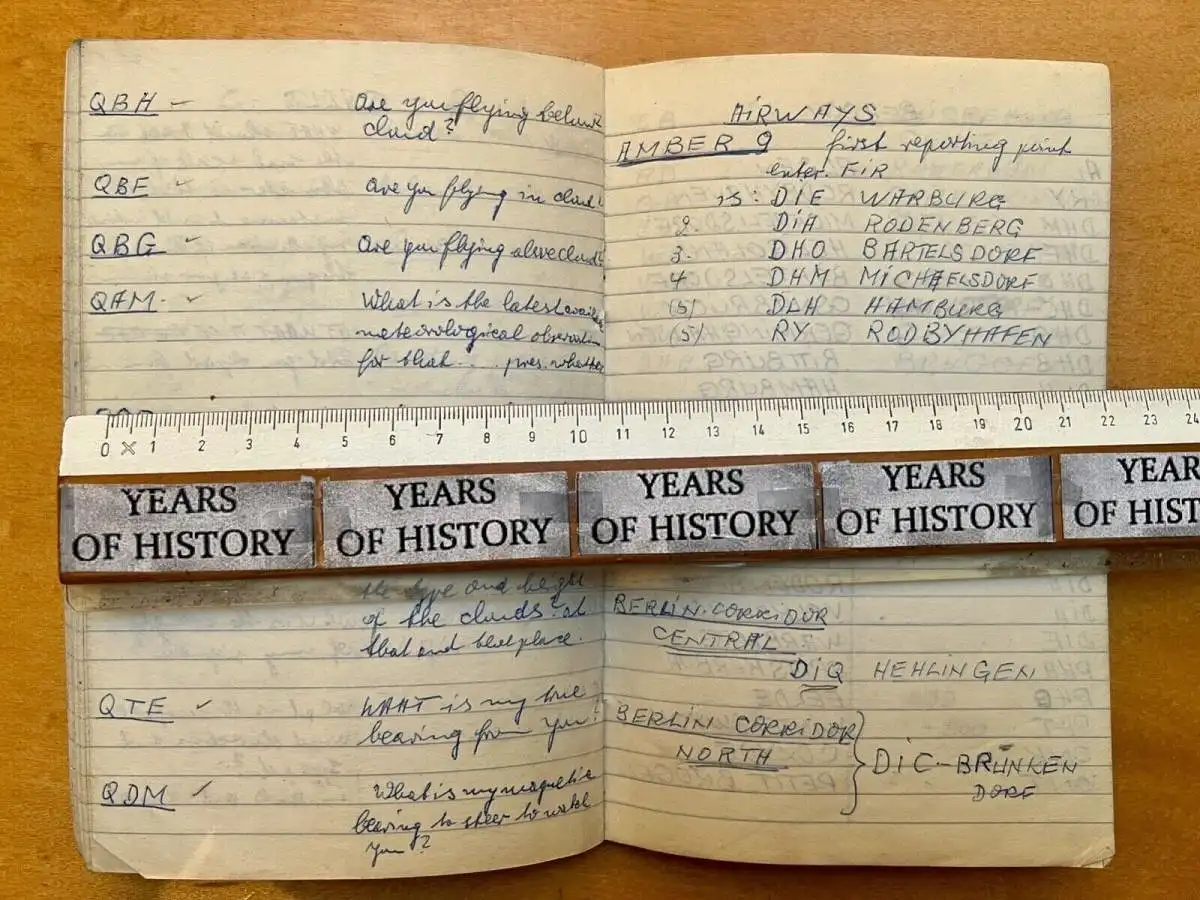 QBH - Are you flying below
cloud?
QBF - Are you flying in cloud?
QBG - Are you flying above cloud?
QAM - What is the latest
meteorological observation
for that .... pres. whether
0 × 1 2 3 4 5 6 7 8 9 10 11 12 13 14 15 16 17 18 19 20 21 22 23 24
YEARS OF HISTORY
YEARS OF HISTORY
YEARS OF HISTORY
YEARS OF HISTORY
YEARS OF HIST
the type and height
of the clouds? at
that and place.
QTE - WHAT is my true
bearing from you?
QDM - What is my magnetic
bearing to steer to
you?
AIRWAYS
AMBER 9 first reporting point
enter. FIR
is: DIE WARBURG
2. DIA RODENBERG
3. DHO BARTELSDORF
4 DHM MICHAELSDORF
(5) DLH HAMBURG
(5) RY RODBYHAFEN
BERLIN-CORRIDOR
CENTRAL
DIQ HEHLINGEN
BERLIN CORRIDOR
NORTH } DIC-BRUNKEN
DORF